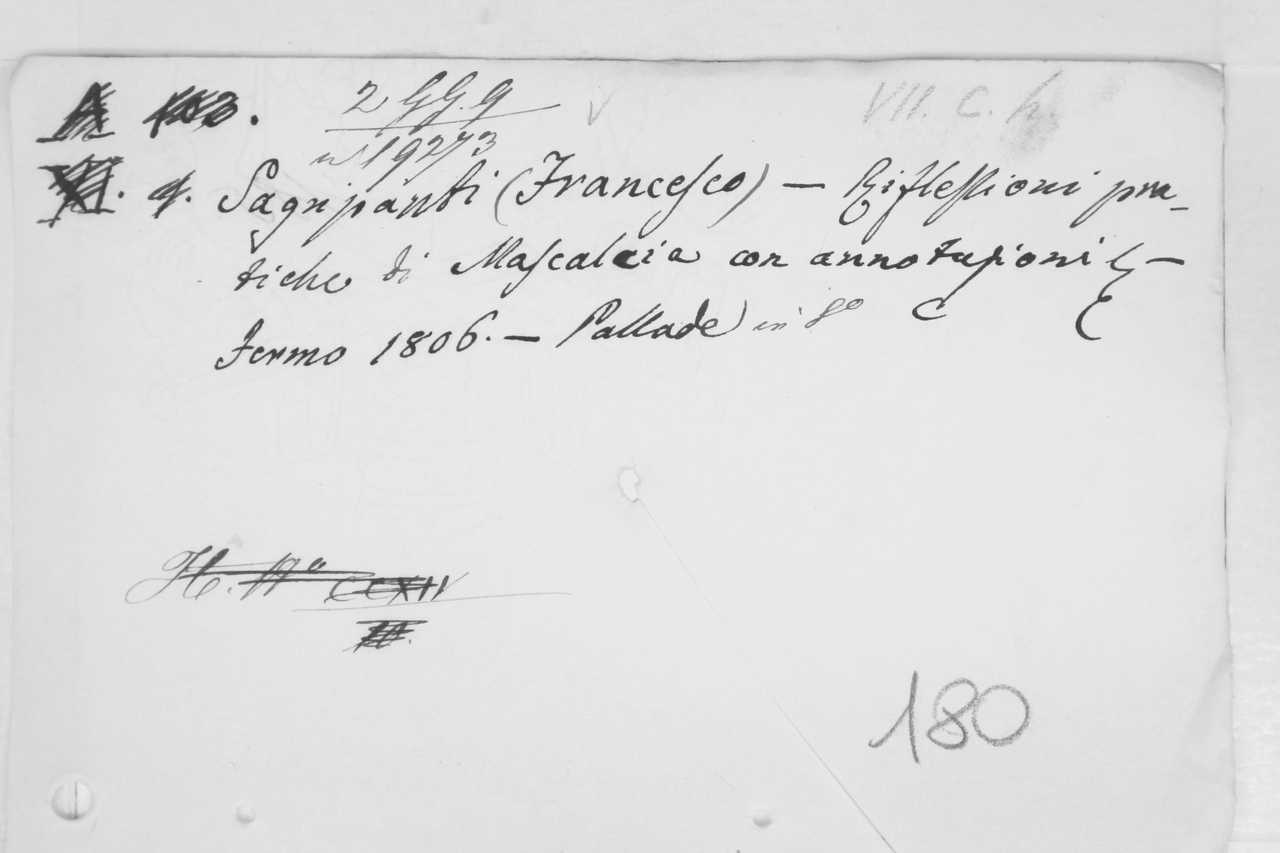 A 103. 2 GG. 9 VII. C. h.
n° 19273
XI. q. Sagripanti (Francesco) — Riflessioni pra-
tiche di Mascalcia con annotazioni &—
Fermo 1806. — Pallade in 8°
H. N° CCXIV
180